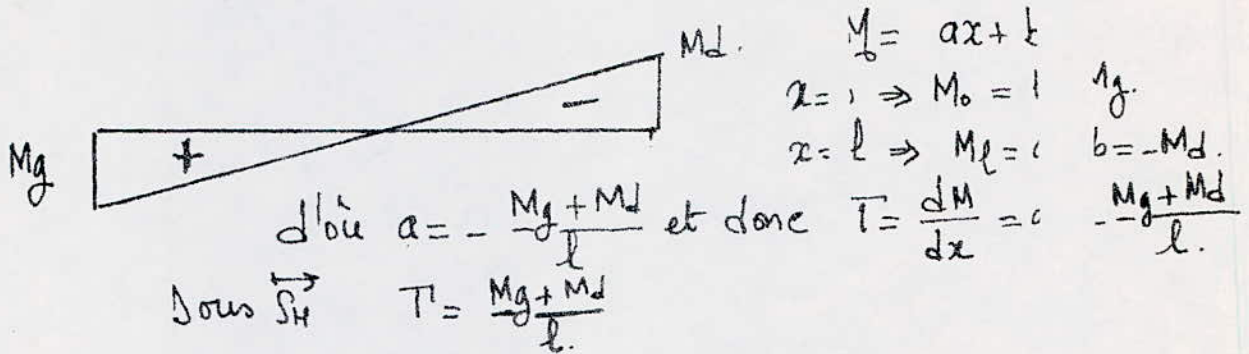 Md.
M₀ = ax +
x = ⇒ M₀ = g.
x = l ⇒ Ml = b = -Md.
Mg + -
d'où a = - (Mg + Md)/l et donc T = dM/dx = - (Mg + Md)/l.
Sous SH T = (Mg + Md)/l.